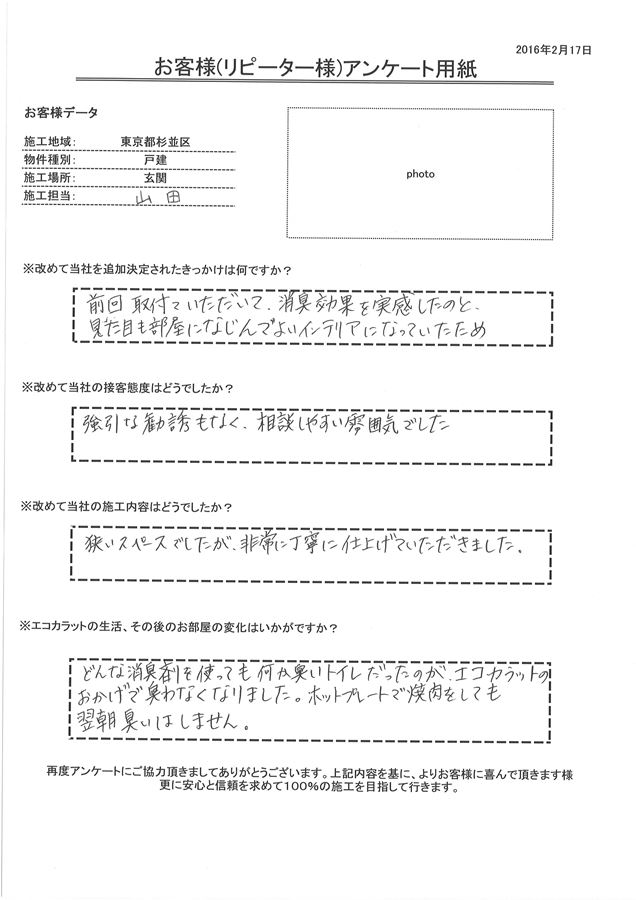 2016年2月17日
お客様(リピーター様)アンケート用紙
お客様データ
施工地域： 東京都杉並区
物件種別： 戸建
施工場所： 玄関
施工担当： 山田
photo
※改めて当社を追加決定されたきっかけは何ですか？
前回取付ていただいて、消臭効果を実感したのと、
見た目も部屋になじんでよいインテリアになっていたため
※改めて当社の接客態度はどうでしたか？
強引な勧誘もなく、相談しやすい雰囲気でした
※改めて当社の施工内容はどうでしたか？
狭いスペースでしたが、非常に丁寧に仕上げていただきました。
※エコカラットの生活、その後のお部屋の変化はいかがですか？
どんな消臭剤を使っても何か臭いトイレだったのが、エコカラットの
おかげで臭わなくなりました。ホットプレートで焼肉をしても
翌朝臭いはしません。
再度アンケートにご協力頂きましてありがとうございます。上記内容を基に、よりお客様に喜んで頂きます様
更に安心と信頼を求めて100%の施工を目指して行きます。